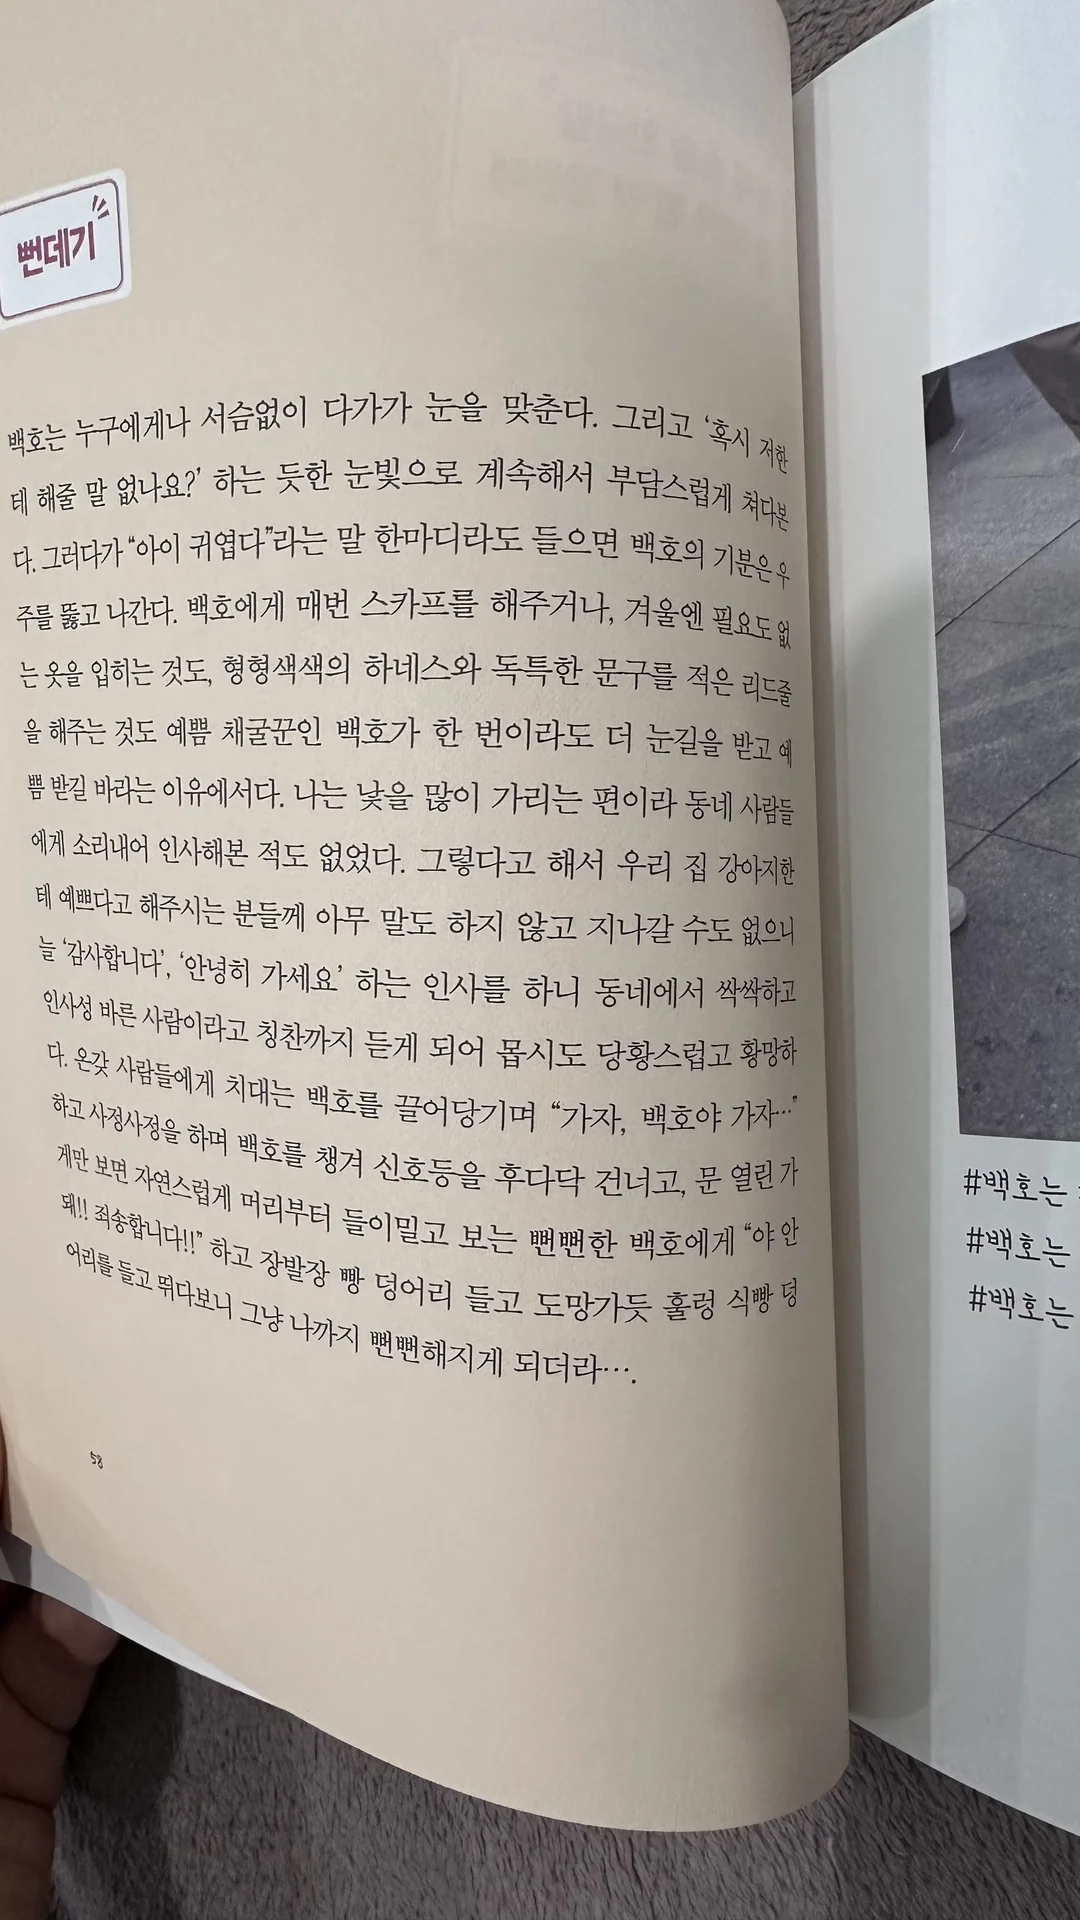 뻔데기
백호는 누구에게나 서슴없이 다가가 눈을 맞춘다. 그리고 ‘혹시 저한
테 해줄 말 없나요?’ 하는 듯한 눈빛으로 계속해서 부담스럽게 쳐다본
다. 그러다가 “아이 귀엽다”라는 말 한마디라도 들으면 백호의 기분은 우
주를 뚫고 나간다. 백호에게 매번 스카프를 해주거나, 겨울엔 필요도 없
는 옷을 입히는 것도, 형형색색의 하네스와 독특한 문구를 적은 리드줄
을 해주는 것도 예쁨 채굴꾼인 백호가 한 번이라도 더 눈길을 받고 예
쁨 받길 바라는 이유에서다. 나는 낯을 많이 가리는 편이라 동네 사람들
에게 소리내어 인사해본 적도 없었다. 그렇다고 해서 우리 집 강아지한
테 예쁘다고 해주시는 분들께 아무 말도 하지 않고 지나갈 수도 없으니
늘 ‘감사합니다’, ‘안녕히 가세요’ 하는 인사를 하니 동네에서 싹싹하고
인사성 바른 사람이라고 칭찬까지 듣게 되어 몹시도 당황스럽고 황망하
다. 온갖 사람들에게 치대는 백호를 끌어당기며 “가자, 백호야 가자…”
하고 사정사정을 하며 백호를 챙겨 신호등을 후다닥 건너고, 문 열린 가
게만 보면 자연스럽게 머리부터 들이밀고 보는 뻔뻔한 백호에게 “야 안
돼!! 죄송합니다!!” 하고 장발장 빵 덩어리 들고 도망가듯 훌렁 식빵 덩
어리를 들고 뛰다보니 그냥 나까지 뻔뻔해지게 되더라….
58
#백호는
#백호는
#백호는